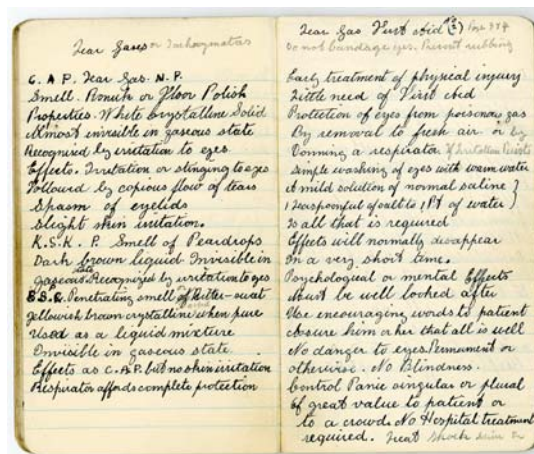 Tear Gases or Lachrymators
C. A. P. Tear Gas. N.P.
Smell. Ronuk or Floor Polish
Properties. White Crystalline Solid
Almost invisible in gaseous state
Recognised by irritation to eyes
Effects. Irritation or stinging to eyes
Followed by copious flow of tears
Spasm of eyelids
Slight skin irritation.
K.S.K. P. Smell of Peardrops
Dark brown liquid Invisible in
gaseous state Recognised by irritation to eyes
B.B.C. Penetrating smell of Bitter-sweet
Yellowish brown crystalline when pure
Used as a liquid mixture
Invisible in gaseous state
Effects as C.A.P. but no skin irritation
Respirator affords complete protection
Tear Gas First Aid (2) Page
Do not bandage eyes. Prevent rubbing
Early treatment of physical injury
Little need of First Aid
Protection of eyes from poisonous gas
By removal to fresh air or by
Donning a respirator. If Irritation Persists
Simple washing of eyes with warm water
A mild solution of normal saline }
1 Teaspoonful of salt to 1 Pt of water }
Is all that is required
Effects will normally disappear
In a very short time.
Psychological or mental Effects
Must be well looked after
Use encouraging words to patient
Assure him or her that all is well
No danger to eyes Permament or
otherwise. No Blindness.
Control Panic singular or plural
Of great value to patient or
to a crowd. No Hospital treatment
required. Treat shock